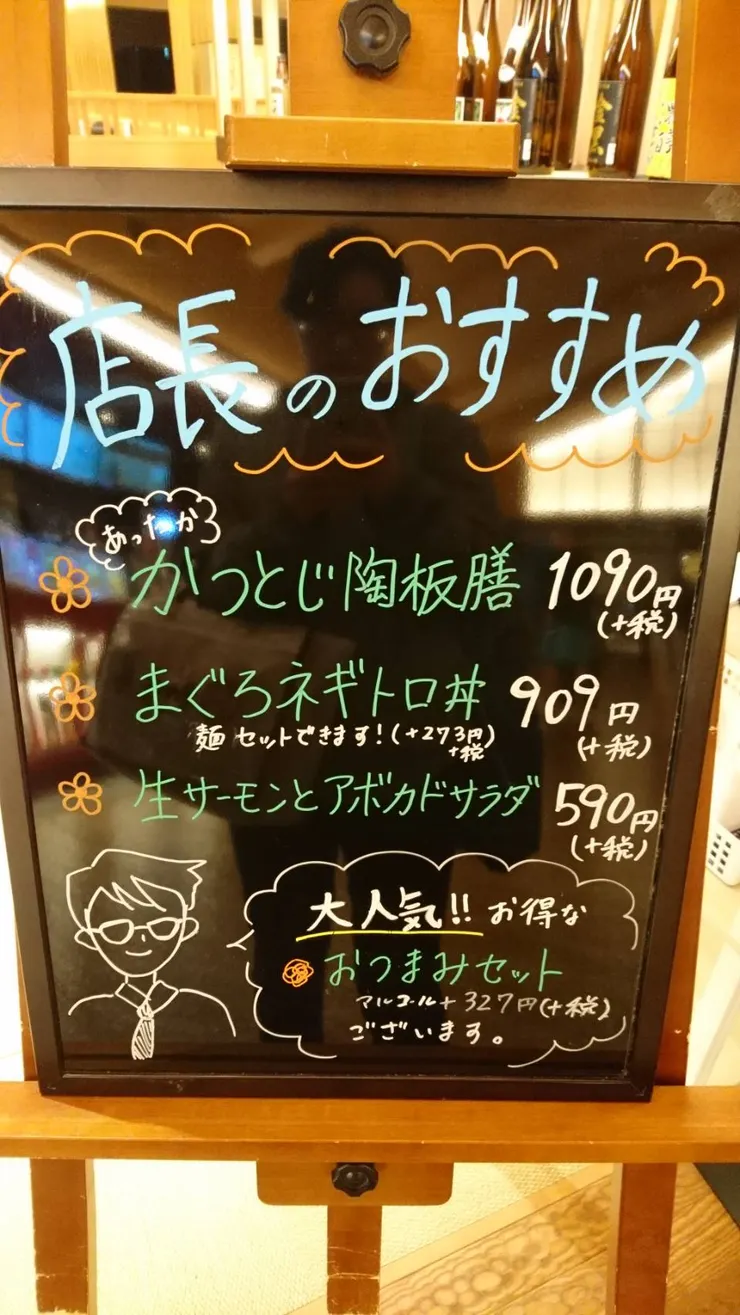 店長のおすすめ
あったか
かつとじ陶板膳 1090円
(+税)
まぐろネギトロ丼 909円
(+税)
麺セットできます!(+273円)
+税
生サーモンとアボカドサラダ 590円
(+税)
大人気!! お得な
おつまみセット
アルコール+327円(+税)
ございます。